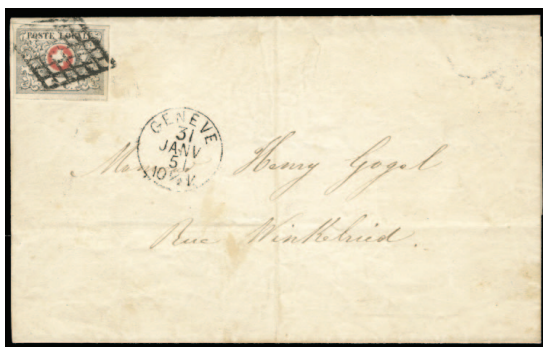 POSTE LOCALE
GENEVE
31
JANV
51
10
Henry Gogel
Rue Winkelried.